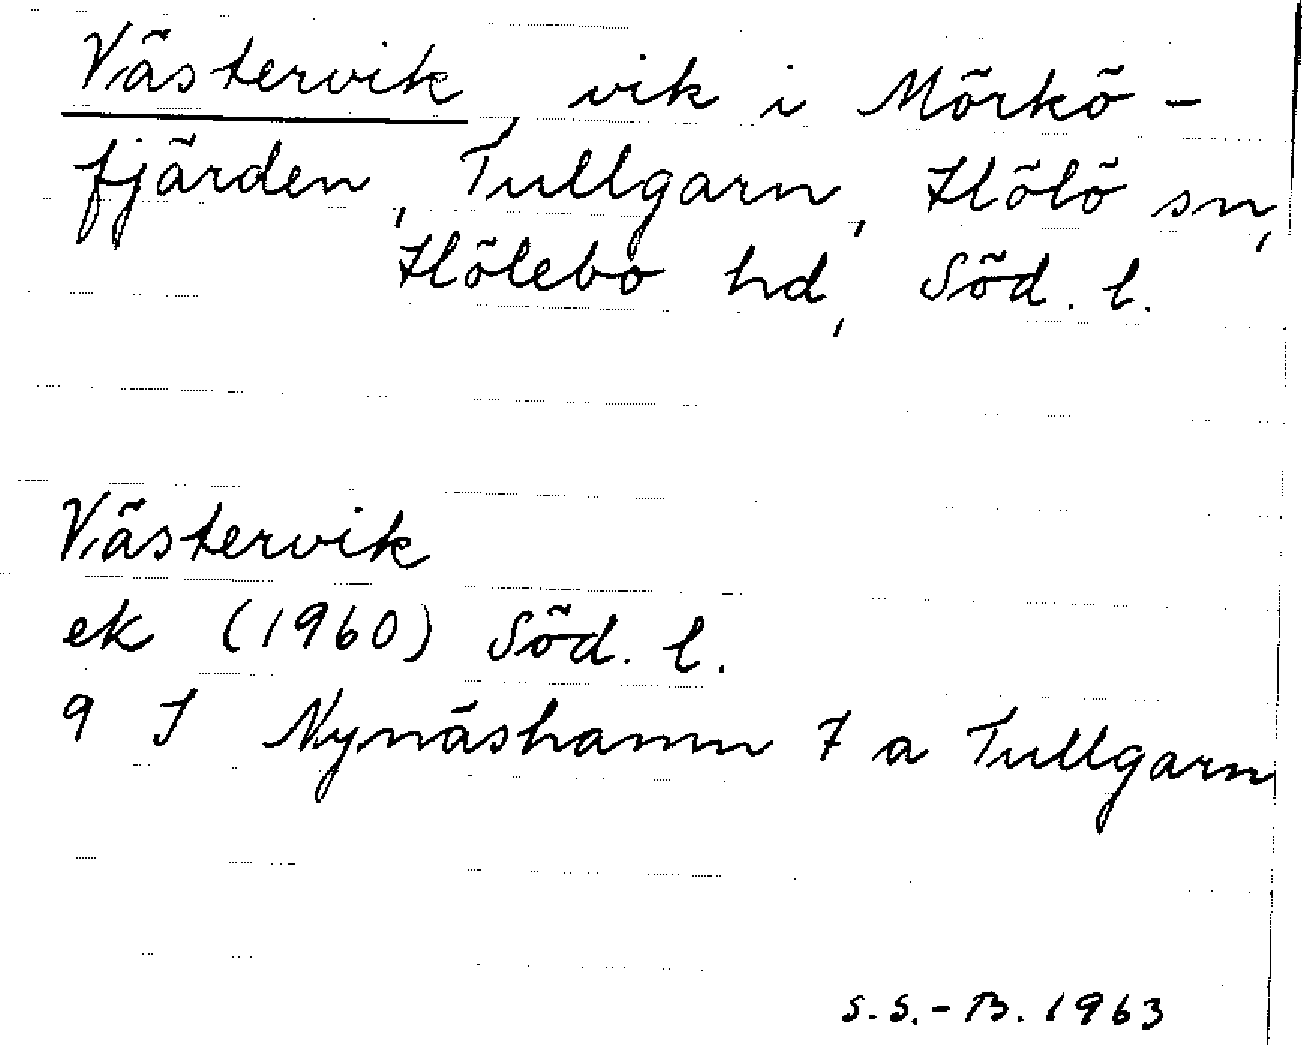 Västervik, vik i Mörkö-
fjärden, Tullgarn, Hölö sn,
Hölebo hd, Söd. l.
Västervik
ek (1960) Söd. l.
9 I Nynäshamn 7 a Tullgarn
S.S.-B. 1963